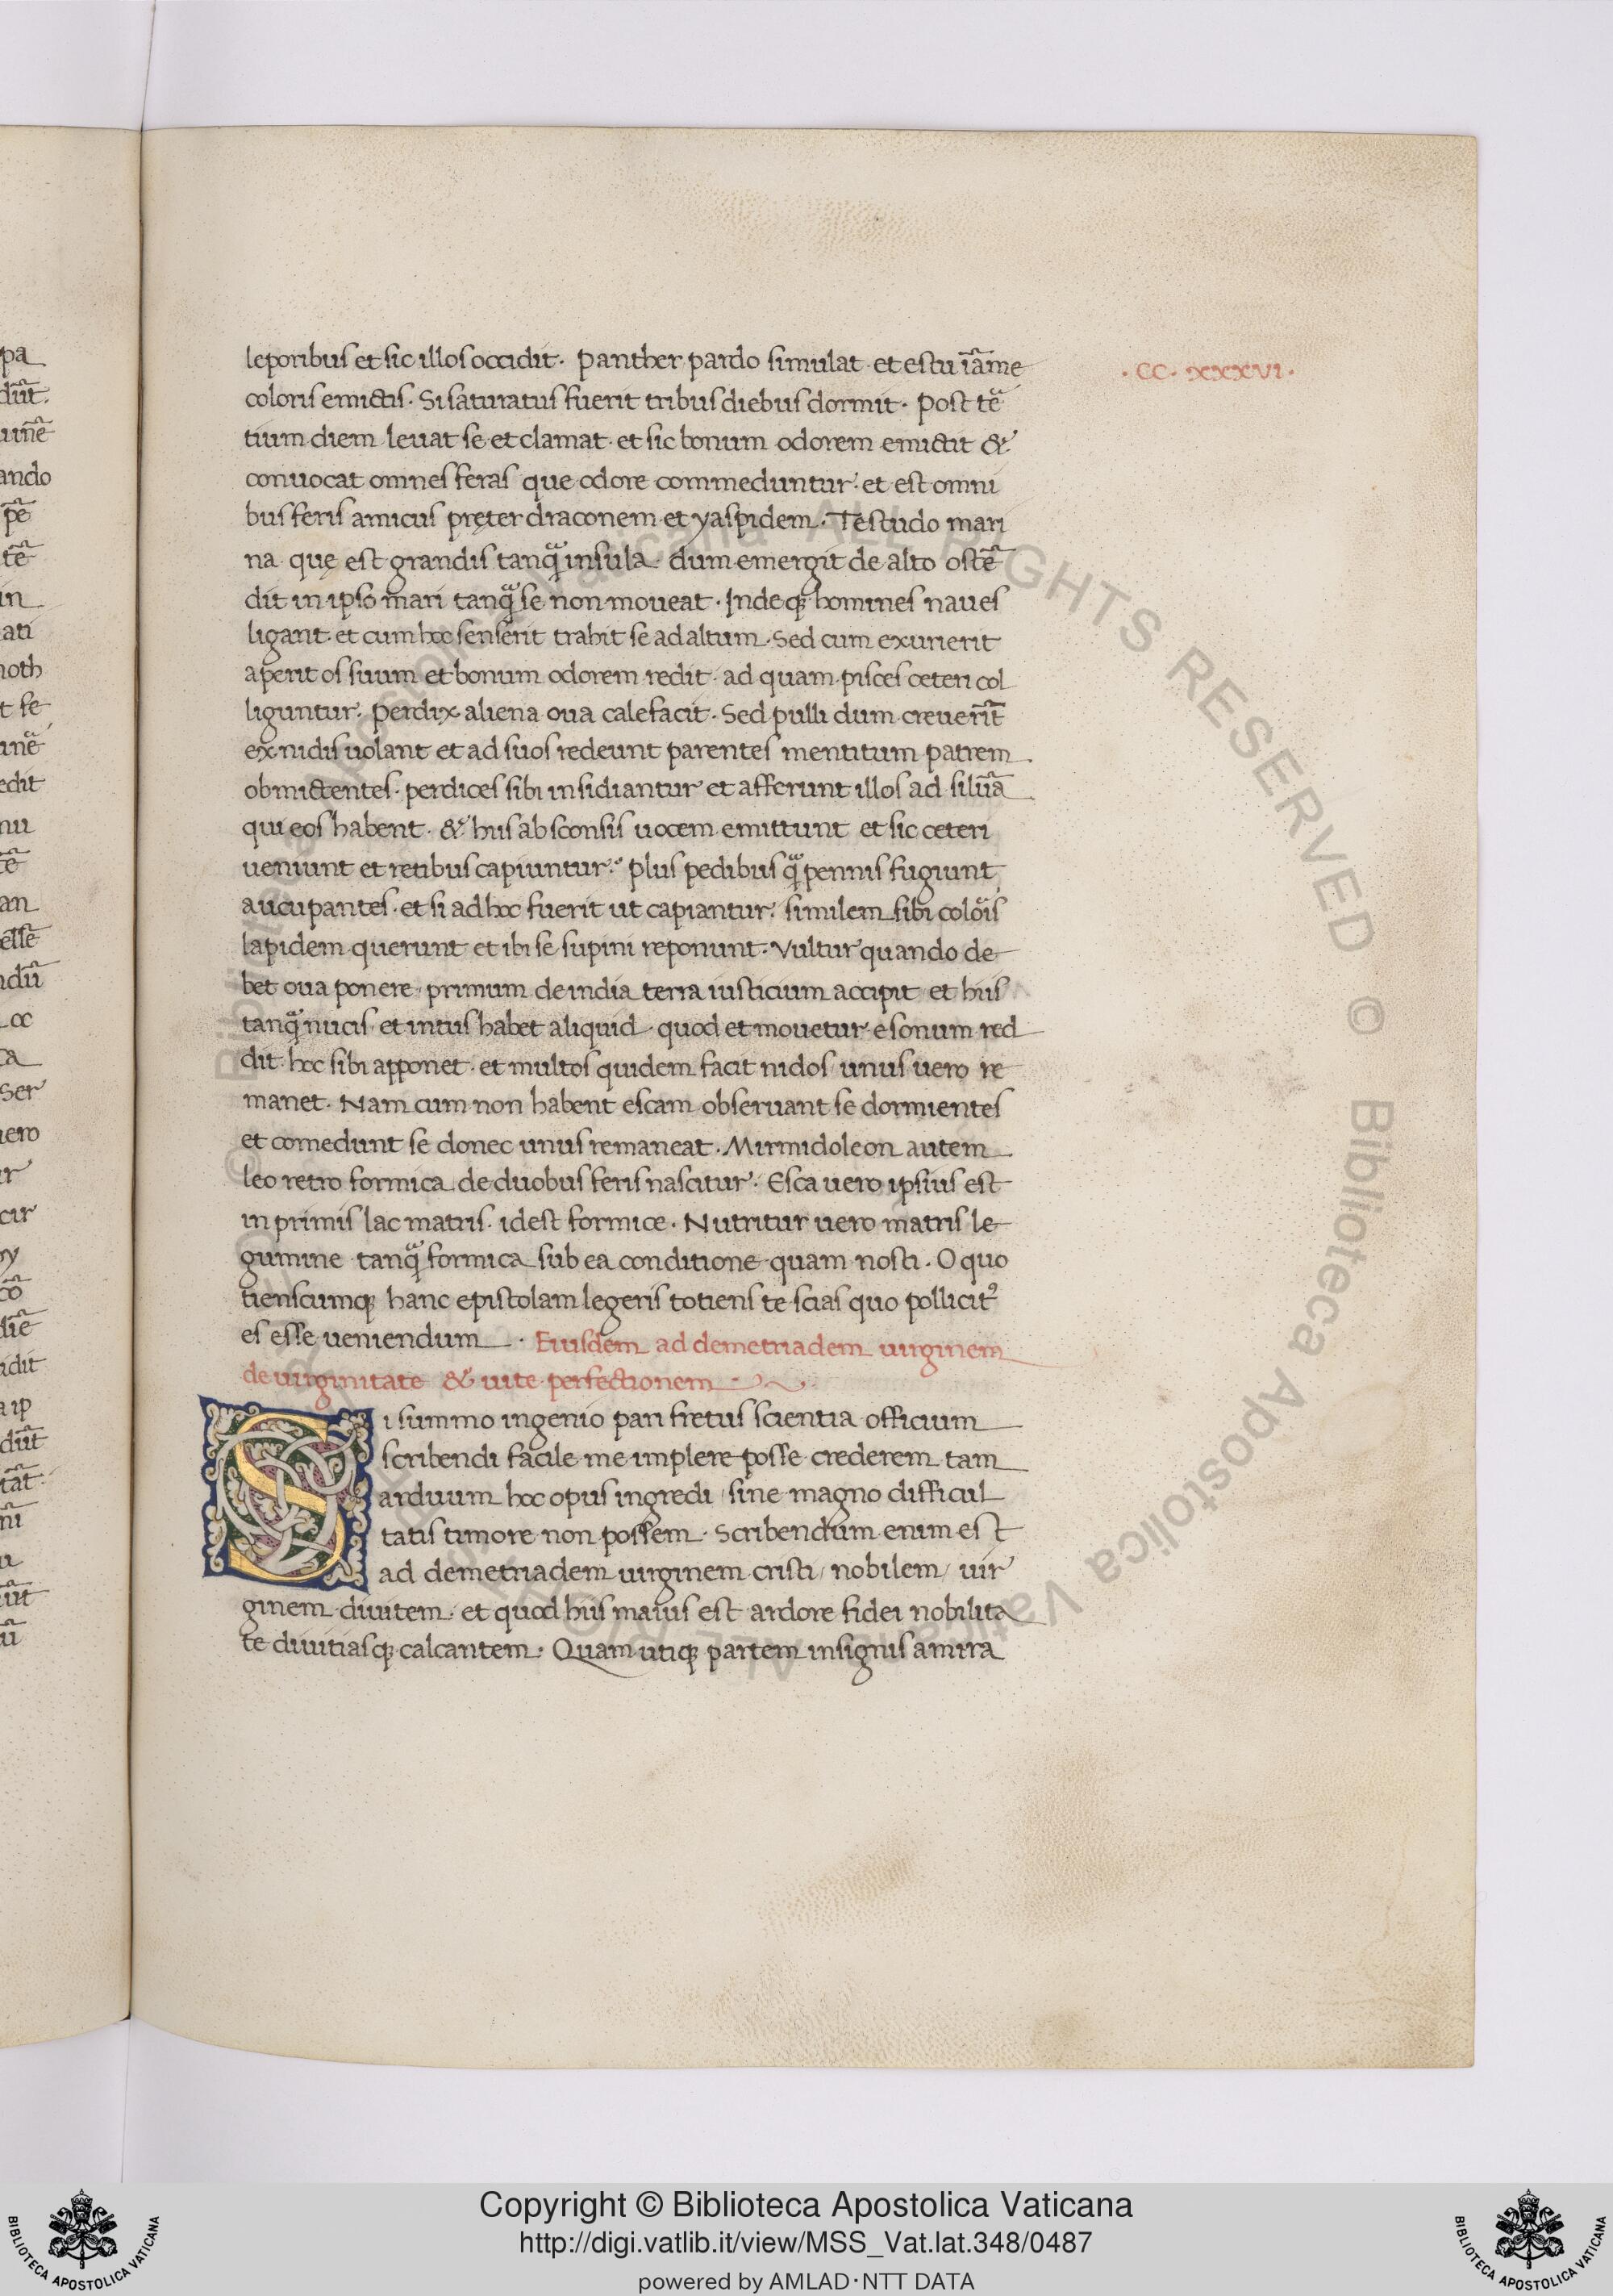 pa
dūt.
ando
pē
tē
in
ati
moth
t se
edit
nu
tē
an
ndū
ca
ser
uero
ur
cir
ny
cō
diē
idit
a ip
dūt
tāt.
nī
ūt
ū
leporibus et sic illos occidit. Panther pardo simulat et estu īāme
coloris emictis. Si saturatus fuerit tribus diebus dormit. Post te͛
tium diem leuat se et clamat. et sic bonum odorem emictit &
conuocat omnes feras que odore commeduntur. et est omni
bus feris amicus pręter draconem et yaspidem. Testudo mari
na quę est grandis tanqᷓ insula dum emergit de alto ostē
dit in ipso mari tanqᷓ se non moueat. Inde qꝫ homines naues
ligant. et cum hoc senserit trahit se ad altum. Sed cum exurierit
aperit os suum et bonum odorem redit. ad quam pisces ceteri col
liguntur. Perdix aliena oua calefacit. Sed pulli dum creuerīt
ex nidis uolant et ad suos redeunt parentes mentitum patrem
obmictentes. perdices sibi insidiantur et afferunt illos ad siluā
qui eos habent. & hiis absconsis uocem emittunt et sic ceteri
ueniunt et retibus capiuntur. plus pedibus qᷓ pennis fugiunt
aucupantes. et si ad hoc fuerit ut capiantur. similem sibi colōis
lapidem querunt et ibi se supini reponunt. Vultur quando de
bet oua ponere primum de india terra iusticium accipit et hiis
tanqᷓ nucis et intus habet aliquid quod et mouetur e sonum red
dit hoc sibi apponet. et multos quidem facit nidos unus uero re
manet. Nam cum non habent escam obseruant se dormientes
et comedunt se donec unus remaneat. Mirmidoleon autem
leo retro formica de duobus feris nascitur. Esca uero ipsius est
in primis lac matris. idest formice. Nutritur uero matris le
gumine tanqᷓ formica sub ea conditione quam nosti. O quo
tienscumqꝫ hanc epistolam legeris totiens te scias quo pollicitꝰ
es esse ueniendum. Eiusdem ad demetriadem uirginem
de uirginitate & uite perfectionem
Si summo ingenio pari fretus scientia officium
scribendi facile me implere posse crederem tam
arduum hoc opus ingredi sine magno difficul
tatis timore non possem. Scribendum enim est
ad demetriadem uirginem cristi / nobilem / uir
ginem diuitem. et quod hiis maius est ardore fidei nobilita
te diuitiasqꝫ calcantem. Quam utiqꝫ partem insignis a mira
. CC. XXXVI.
Copyright © Biblioteca Apostolica Vaticana
http://digi.vatlib.it/view/MSS_Vat.lat.348/0487
powered by AMLAD·NTT DATA
BIBLIOTECA APOSTOLICA VATICANA
BIBLIOTECA APOSTOLICA VATICANA